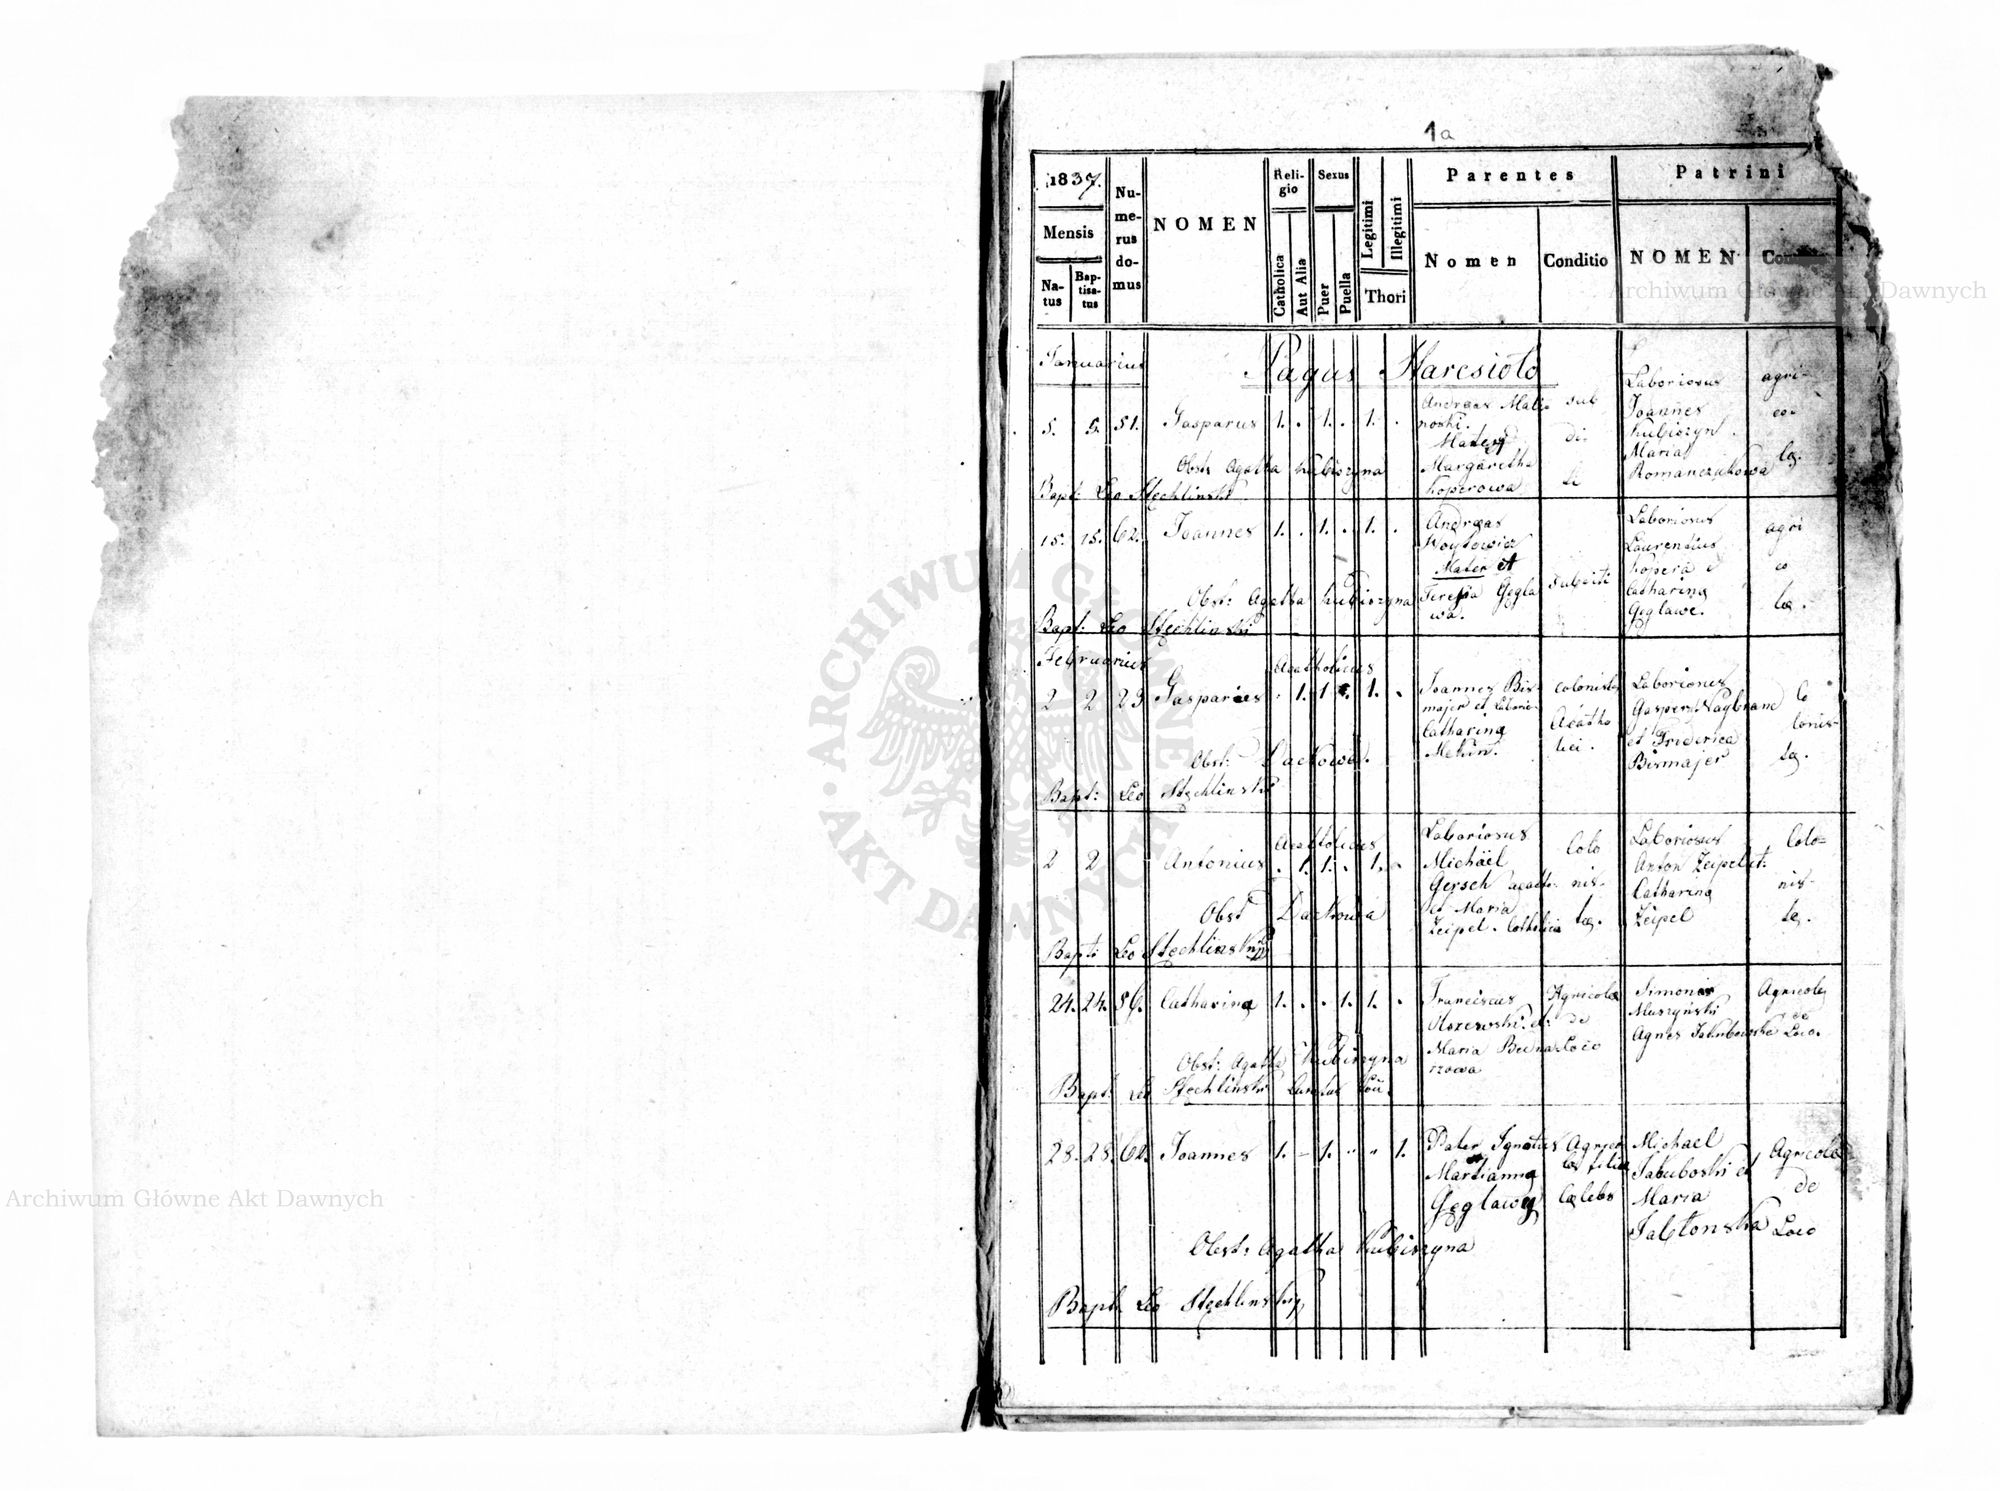 1a
1837.
Mensis
Natus
Bap-
tisa-
tus
Nu-
me-
rus
do-
mus
NOMEN
Reli-
gio
Catholica
Aut Alia
Sexus
Puer
Puella
Legitimi
Illegitimi
Thori
Parentes
Nomen
Conditio
Patrini
NOMEN
Januarius
Pagus
5. 5. 51. Gasparus 1. . 1. . 1. .
Andreas Mali-
noski.
Mater
Margaretha
Koperowa
sub
di
ti
Laboriosus
Joannes
Kubiszyn
Maria
Romanczukowa
agri-
co-
læ.
Obst: Agatha Kubiszyna
Bapt: Leo Stechlinski
15. 15. 62. Joannes 1. . 1. . 1. .
Andreas
Woytowicz
Mater et
Teresia Gegla
wa.
subditi
Laboriosus
Laurentius
Kopera et
Catharina
Geglawe.
agri
co
læ.
Obst: Agatha Kubiszyna
Bapt: Leo Stechlinski
Februarius
Acatholicus
2 2 23 Gasparus . 1. 1 . 1. .
Joannes Bis-
majer et Laborio-
Catharina
colonistæ
Acatho
lici.
Laboriosus
Gasper
et Friderica
Bismajer
Co
lonis-
tæ.
Obst: Dackowa.
Bapt: Leo Stechlinski
Acatholicus
2 2 Antonius . 1. 1. . 1. .
Laboriosus
Michäel
Gersch acath:
et Maria
Zeipel. Catholica
Colo
nis-
tæ.
Laboriosus
Anton Zeipel et:
Catharina
Zeipel
Colo=
nis-
tæ.
Obst Dackowa
Bapt: Leo Stechlinski
24. 24. 56. Catharina 1. . . 1. 1. .
Franciscus
et:
Maria
rzowa
Agricolæ
de
Loco
Simon
Muszynski
Agnes Jakubowska
Agricolæ
de
Loco.
Obst: Agatha Kubiszyna
Bapt: Leo Stechlinski
28. 28. 62. Joannes 1. - 1. " " 1.
Pater Ignotus
Martianna
Geglawy
Agrico
læ filia
Cælebs
Michael
Jakuboski et
Maria
Jabłonska
Agricolæ
de
Loco
Obst: Agatha Kubiszyna
Bapt. Leo Stechlinski
Archiwum Główne Akt Dawnych
Archiwum Główne Akt Dawnych
ARCHIWUM GŁÓWNE
AKT DAWNYCH